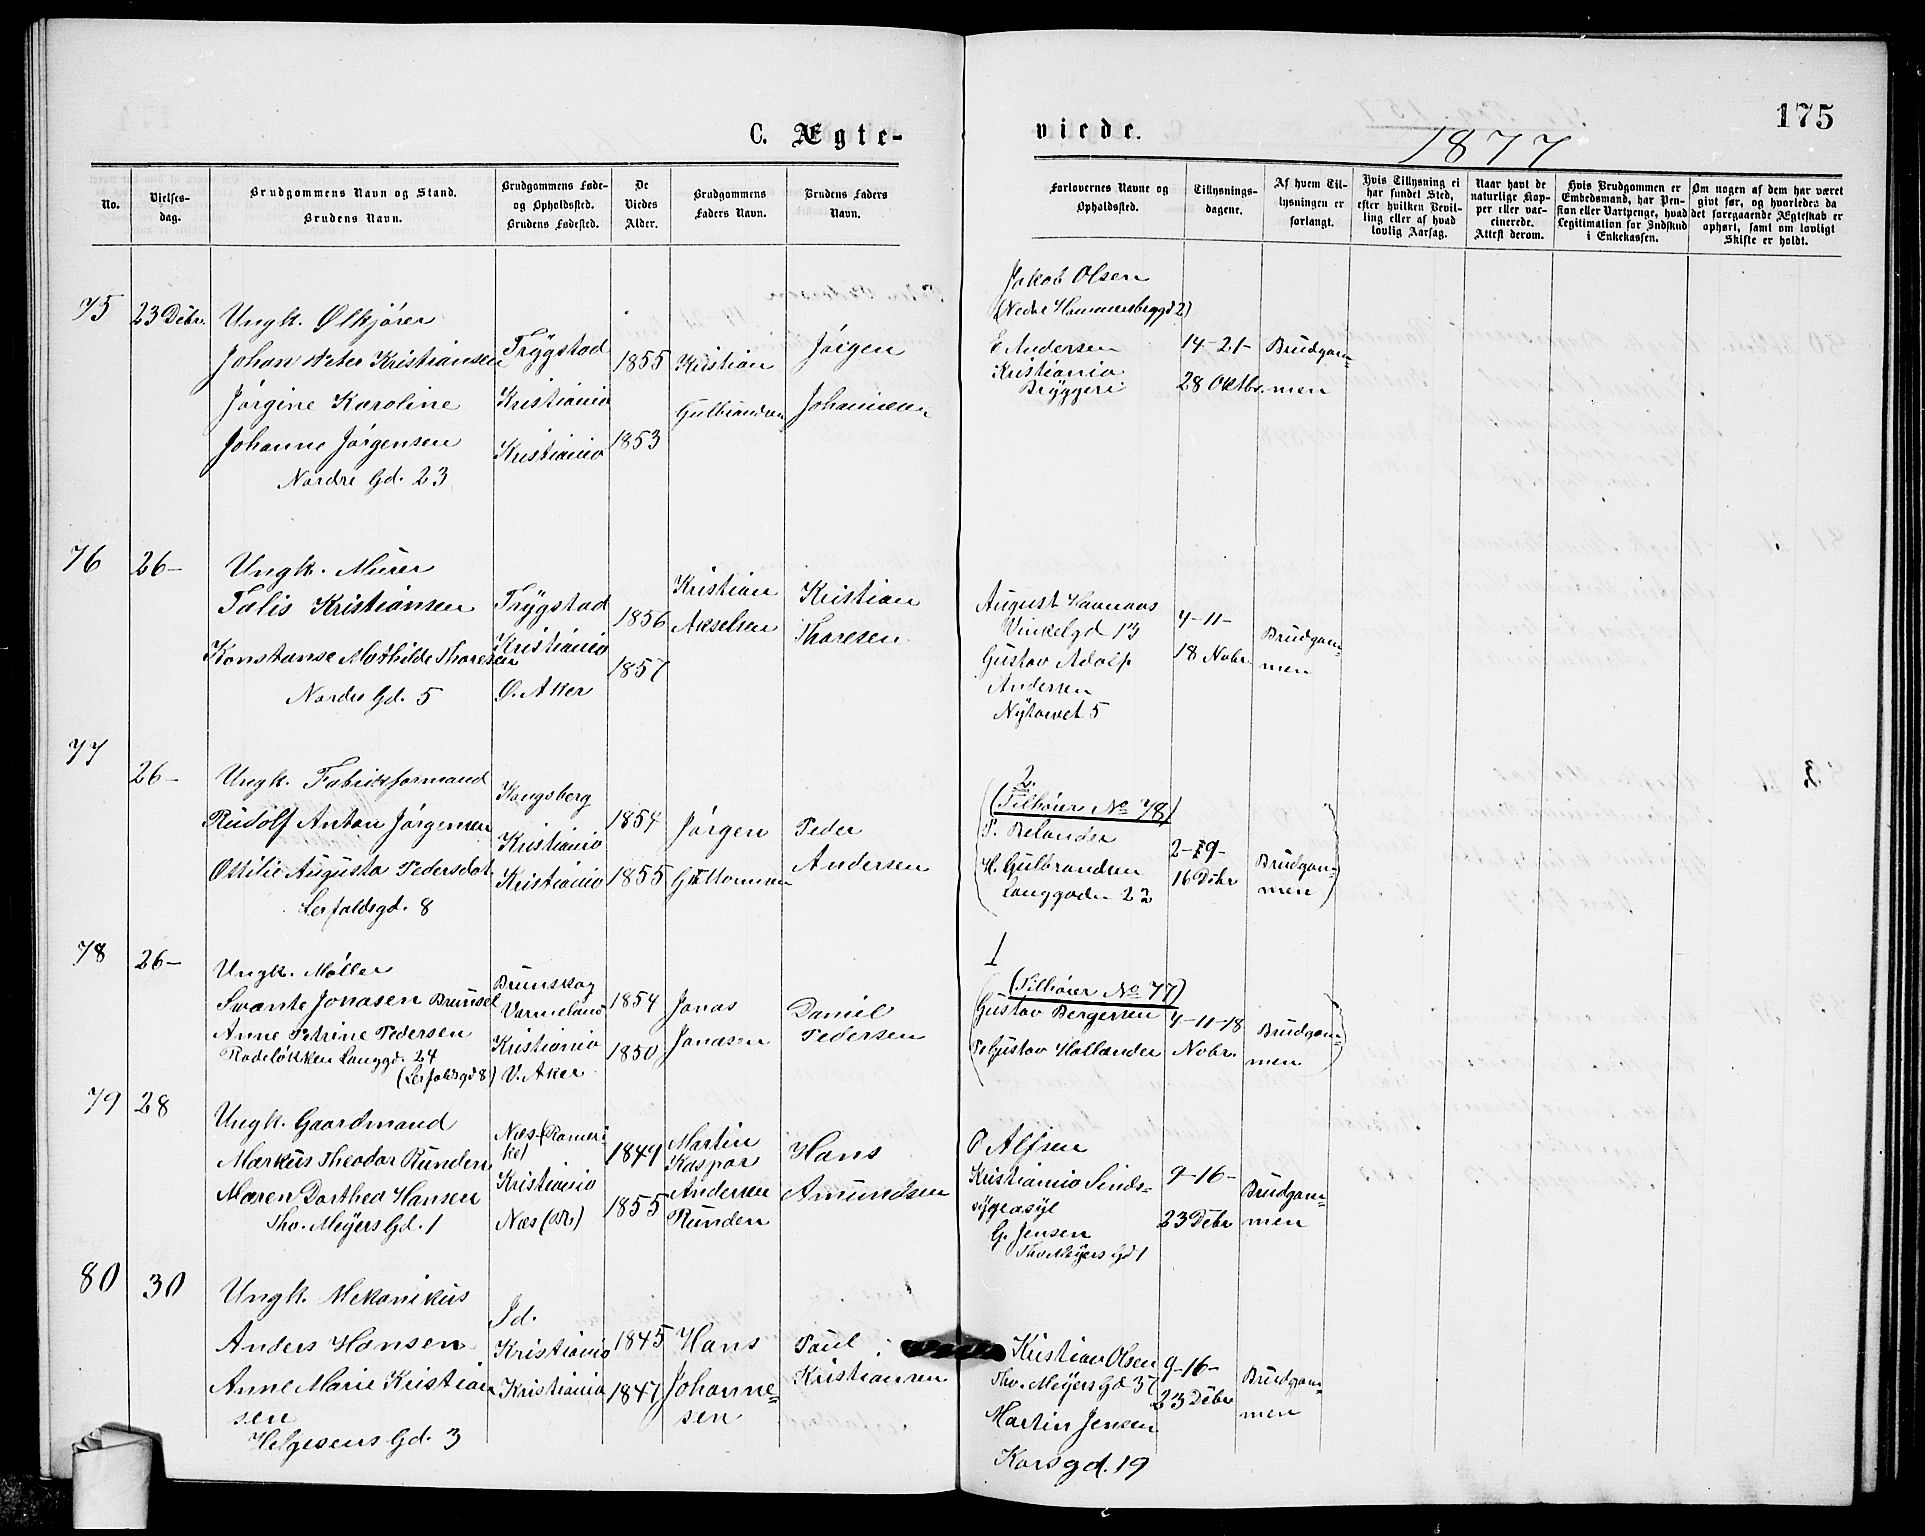 C. Ægte-
viede.
175
1877
No.
Vielses-
dag.
Brudgommens Navn og Stand.
Brudens Navn.
Brudgommens Føde-
og Opholdssted.
Brudens Fødested.
De
Viedes
Alder.
Brudgommens
Faders Navn.
Brudens Faders
Navn.
Forlovernes Navne og
Opholdssted.
Tillysnings-
dagene.
Af hvem Til-
lysningen er
forlangt.
Hvis Tillysning ei
har fundet Sted,
efter hvilken Bevil-
ling eller af hvad
lovlig Aarsag.
Naar havt de
naturlige Kop-
per eller vac-
cinerede.
Attest derom.
Hvis Brudgommen er
Embedsmand, har Pen-
sion eller Vartpenge, hvad
Legitimation for Indskud
i Enkekassen.
Om nogen af dem har været
givt før, og hvorledes da
det foregaaende Ægteskab er
ophørt, samt om lovligt
Skifte er holdt.
75
23 Debr.
Ungk. Ølkjörer
Johan Peter Kristiansen
Jörgine Karoline
Johanne Jörgensen
Nordre Gd. 23
Trygstad
Kristiania
Kristiania
1855
1853
Kristian
Gulbrandsen
Jörgen
Johannesen
Jakob Olsen
(Nedre Hammersborggd 2)
E Andersen
Kristiania
Bryggeri
14-21-
28 Oktbr.
Brudgom-
men
76
26-
Ungk. Murer
Talis Kristiansen
Konstanse Mathilde Thoresen
Nordre Gd. 5
Trygstad
Kristiania
Ø. Aker
1856
1857
Kristian
Akselsen
Kristian
Thoresen
August Haanaas
Vinkelgd 13
Gustav Adolf
Andersen
Nytorvet 5
4-11-
18 Nobr.
Brudgom-
men
77
26-
Ungk. Fabrikformand
Rudolf Anton Jörgensen
Ottilie Augusta Pedersdat.
Lerfaldsgd. 8
Kongsberg
Kristiania
Kristiania
1854
1855
Jörgen
Guttormsen
Peder
Andersen
2.
(Tilhörer No 78)
H. Gulbrandsen
Langgaden 22
2-9-
16 Debr
Brudgom-
men
78
26-
Ungk. Möller
Svante Jonasen Brunsel
Anne Petrine Pedersen
Rodelökken Langgd. 24
(Lerfaldsgd 8)
Brunskog
Varmeland
Kristiania
V. Aker
1854
1850
Jonas
Jonasen
Daniel
Pedersen
1
(Tilhörer No 77)
Gustav Bergersen
Gustav Hollander
4-11-18
Nobr.
Brudgom-
men
79
28
Ungk. Gaardmand
Markus Theodor Runden
Maren Dorthea Hansen
Tho. Meyers Gd. 1
Næs (Romeri
ke)
Kristiania
Næs
1849
1855
Martin
Kaspar
Andersen
Runden
Hans
Amundsen
O Alfsen
Kristiania Sinds-
sygeasyl
G. Jensen
Tho Meyers Gd 1
9-16-
23 Debr
Brudgom-
men
80
30
Ungk. Mekanikus
Anders Hansen
Anne Marie Kristian
sen
Helgesens Gd. 3
Id.
Kristiania
Kristiania
1845
1847
Hans
Johanne-
sen
Paul
Kristiansen
Kristian Olsen
Tho. Meyers Gd 37
Martin Jensen
Korsgd. 19
9-16-
23 Debr.
Brudgom-
men